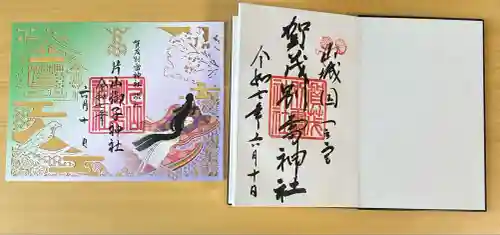 賀茂別雷神社
片山御子神社
令和七年
六月十日
山城国一之宮
賀茂別雷神社
令和七年六月十日